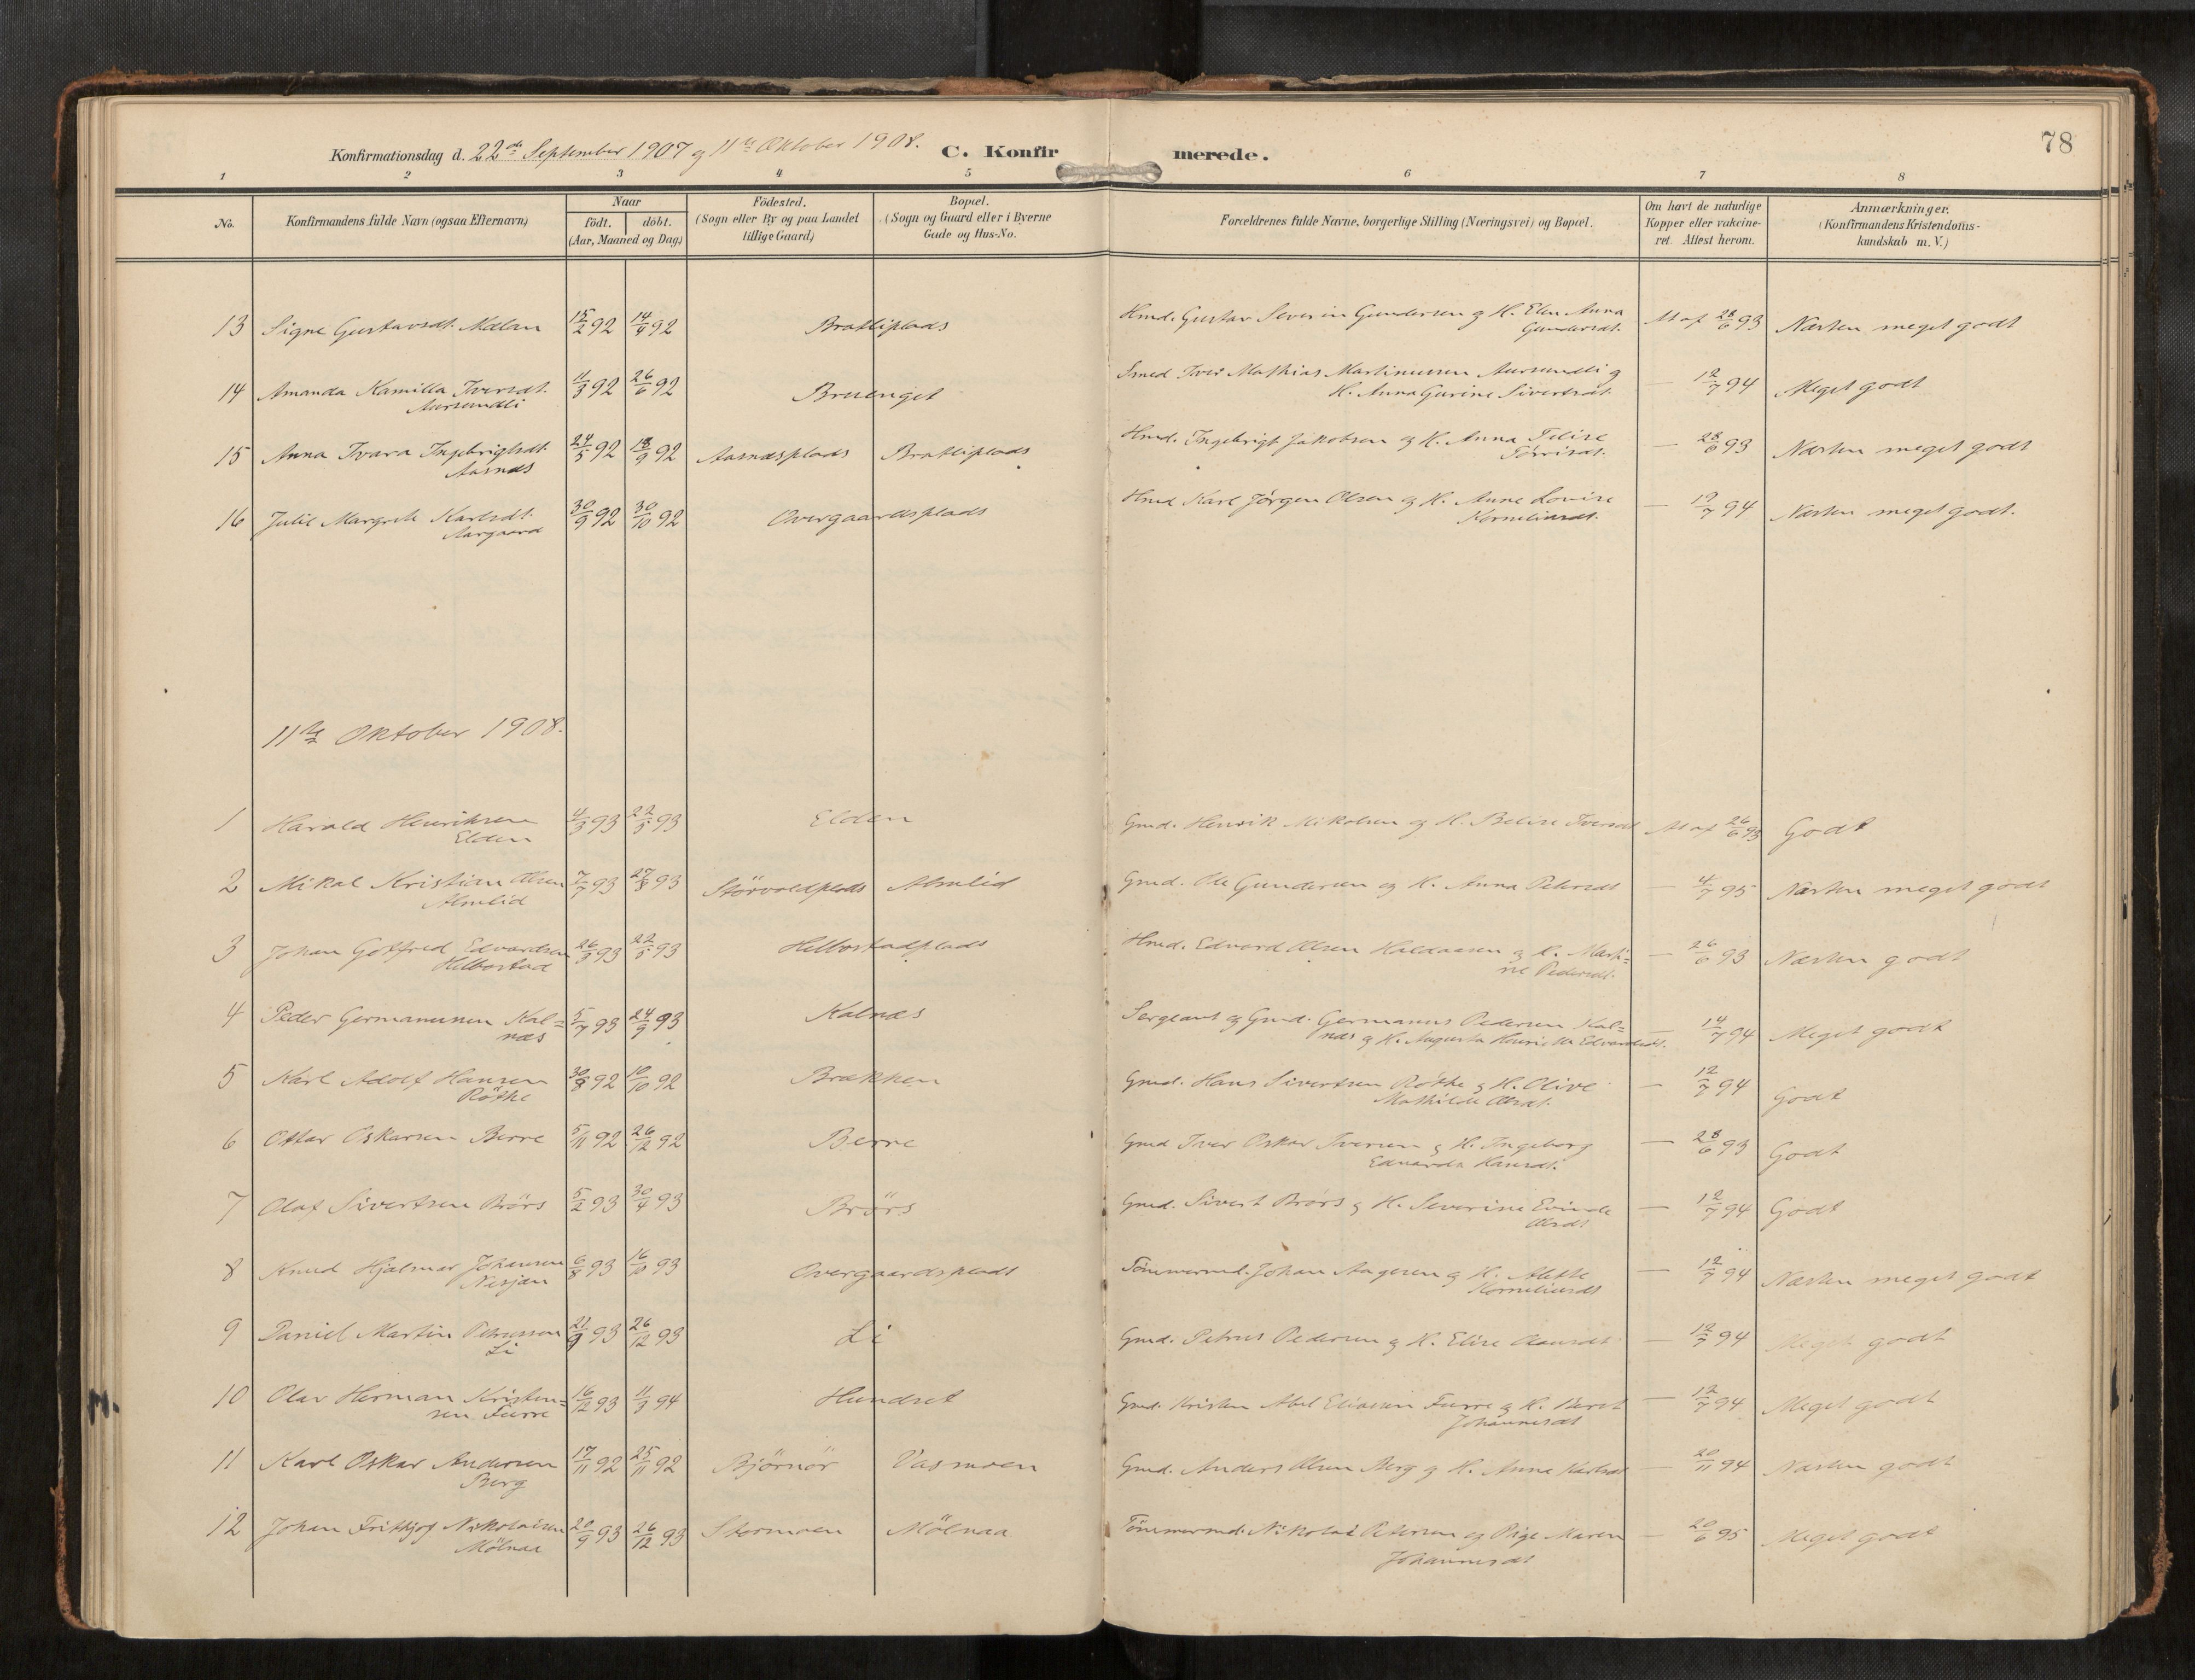 78
Konfirmationsdag d. 22de September 1907 og 11te Oktober 1908. C. Konfirmerede.
1 2 3 4 5 6 7 8
No. Konfirmandens fulde Navn (ogsaa Efternavn) Naar Födested. Bopæl. Forældrenes fulde Navne, borgerlige Stilling (Næringsvei) og Bopæl. Om havt de naturlige Anmærkninger.
födt. döbt. (Sogn eller By og paa Landet (Sogn og Gaard eller i Byerne Kopper eller vakcine- (Konfirmandens Kristendoms-
(Aar, Maaned og Dag) tillige Gaard) Gade og Hus-No. ret. Attest herom. kundskab m. V.)
13 Signe Gustavsdt. Mælan 15/2 92 14/4 92 Bratliplads Hmd. Gustav Severin Gundersen og H. Elen Anna At af 28/6 93 Næsten meget godt
Gundersdt.
14 Amanda Kamilla Iversdt. 11/3 92 26/6 92 Bruenget Smed Iver Mathias Martinussen Aursundli og — 12/7 94 Meget godt
Aursundli H. Anna Gurine Sivertsdt.
15 Anna Ivara Ingebrigtsdt. 24/5 92 18/9 92 Aasnæsplads Bratliplads Hmd. Ingebrigt Jakobsen og H. Anna Elise — 28/6 93 Næsten meget godt
Aasnæs Torrisdt.
16 Julie Margrete Karlsdt. 30/9 92 30/10 92 Overgaardsplads Hmd Karl Jørgen Olsen og H. Anne Lovise — 12/7 94 Næsten meget godt.
Aargaard Korneliusdt.
11te Oktober 1908.
1 Harald Henriksen 4/3 93 22/5 93 Elden Gmd. Henrik Mikalsen og H. Beline Iversdt At af 26/6 93 Godt
Elden
2 Mikal Kristian Olsen 7/7 93 27/8 93 Störvoldplads Almlid Gmd. Ole Gundersen og H. Anna Petersdt — 4/7 95 Næsten meget godt
Almlid
3 Johan Gotfred Edvardsen 26/3 93 22/5 93 Helbostadplads Hmd. Edvard Olsen Haldaasen og H. Marti=- — 26/6 93 Næsten godt
Helbostad ne Pedersdt.
4 Peder Germanussen Kal= 5/7 93 24/9 93 Kalnæs Sergeant og Gmd. Germanus Pedersen Kal= — 14/7 94 Meget godt
næs næs og H. Augusta Henriette Edvardsdt.
5 Karl Adolf Hansen 30/8 92 10/10 92 Brækken Gmd. Hans Sivertsen Röthe og H. Olive — 12/7 94 Godt
Röthe Mathilde Olsdt.
6 Ottar Oskarsen Berre 5/11 92 26/12 92 Berre Gmd Iver Oskar Iversen og H. Ingeborg — 28/6 93 Godt
Edvarda Hansdt.
7 Olaf Sivertsen Brörs 5/2 93 30/4 93 Brörs Gmd. Sivert Brörs og H. Severine Evinde — 12/7 94 Godt
Olsdt
8 Knud Hjalmar Johansen 6/8 93 16/10 93 Overgaardsplads Tömmermd. Johan Aagesen og H. Alette — 12/7 94 Næsten meget godt
Nesjan Korneliusdt
9 Daniel Martin Petrussen 21/9 93 26/12 93 Li Gmd. Petrus Pedersen og H. Elise Olausdt — 12/7 94 Meget godt
Li
10 Olav Herman Kristen= 16/12 93 11/3 94 Hundset Gmd. Kristen Abel Eliasen Furre og H. Beret — 12/7 94 Meget godt
sen Furre Johannesdt
11 Karl Oskar Andersen 17/11 92 25/11 92 Björnör Vasmoen Gmd. Anders Olsen Berg og H. Anna Karlsdt — 20/11 94 Næsten godt
Berg
12 Johan Frithjof Nikolaisen 20/9 93 26/12 93 Stormoen Mölnaa Tömmermd. Nikolai Petersen og Pige Maren — 20/6 95 Meget godt
Mölnaa Johannesdt